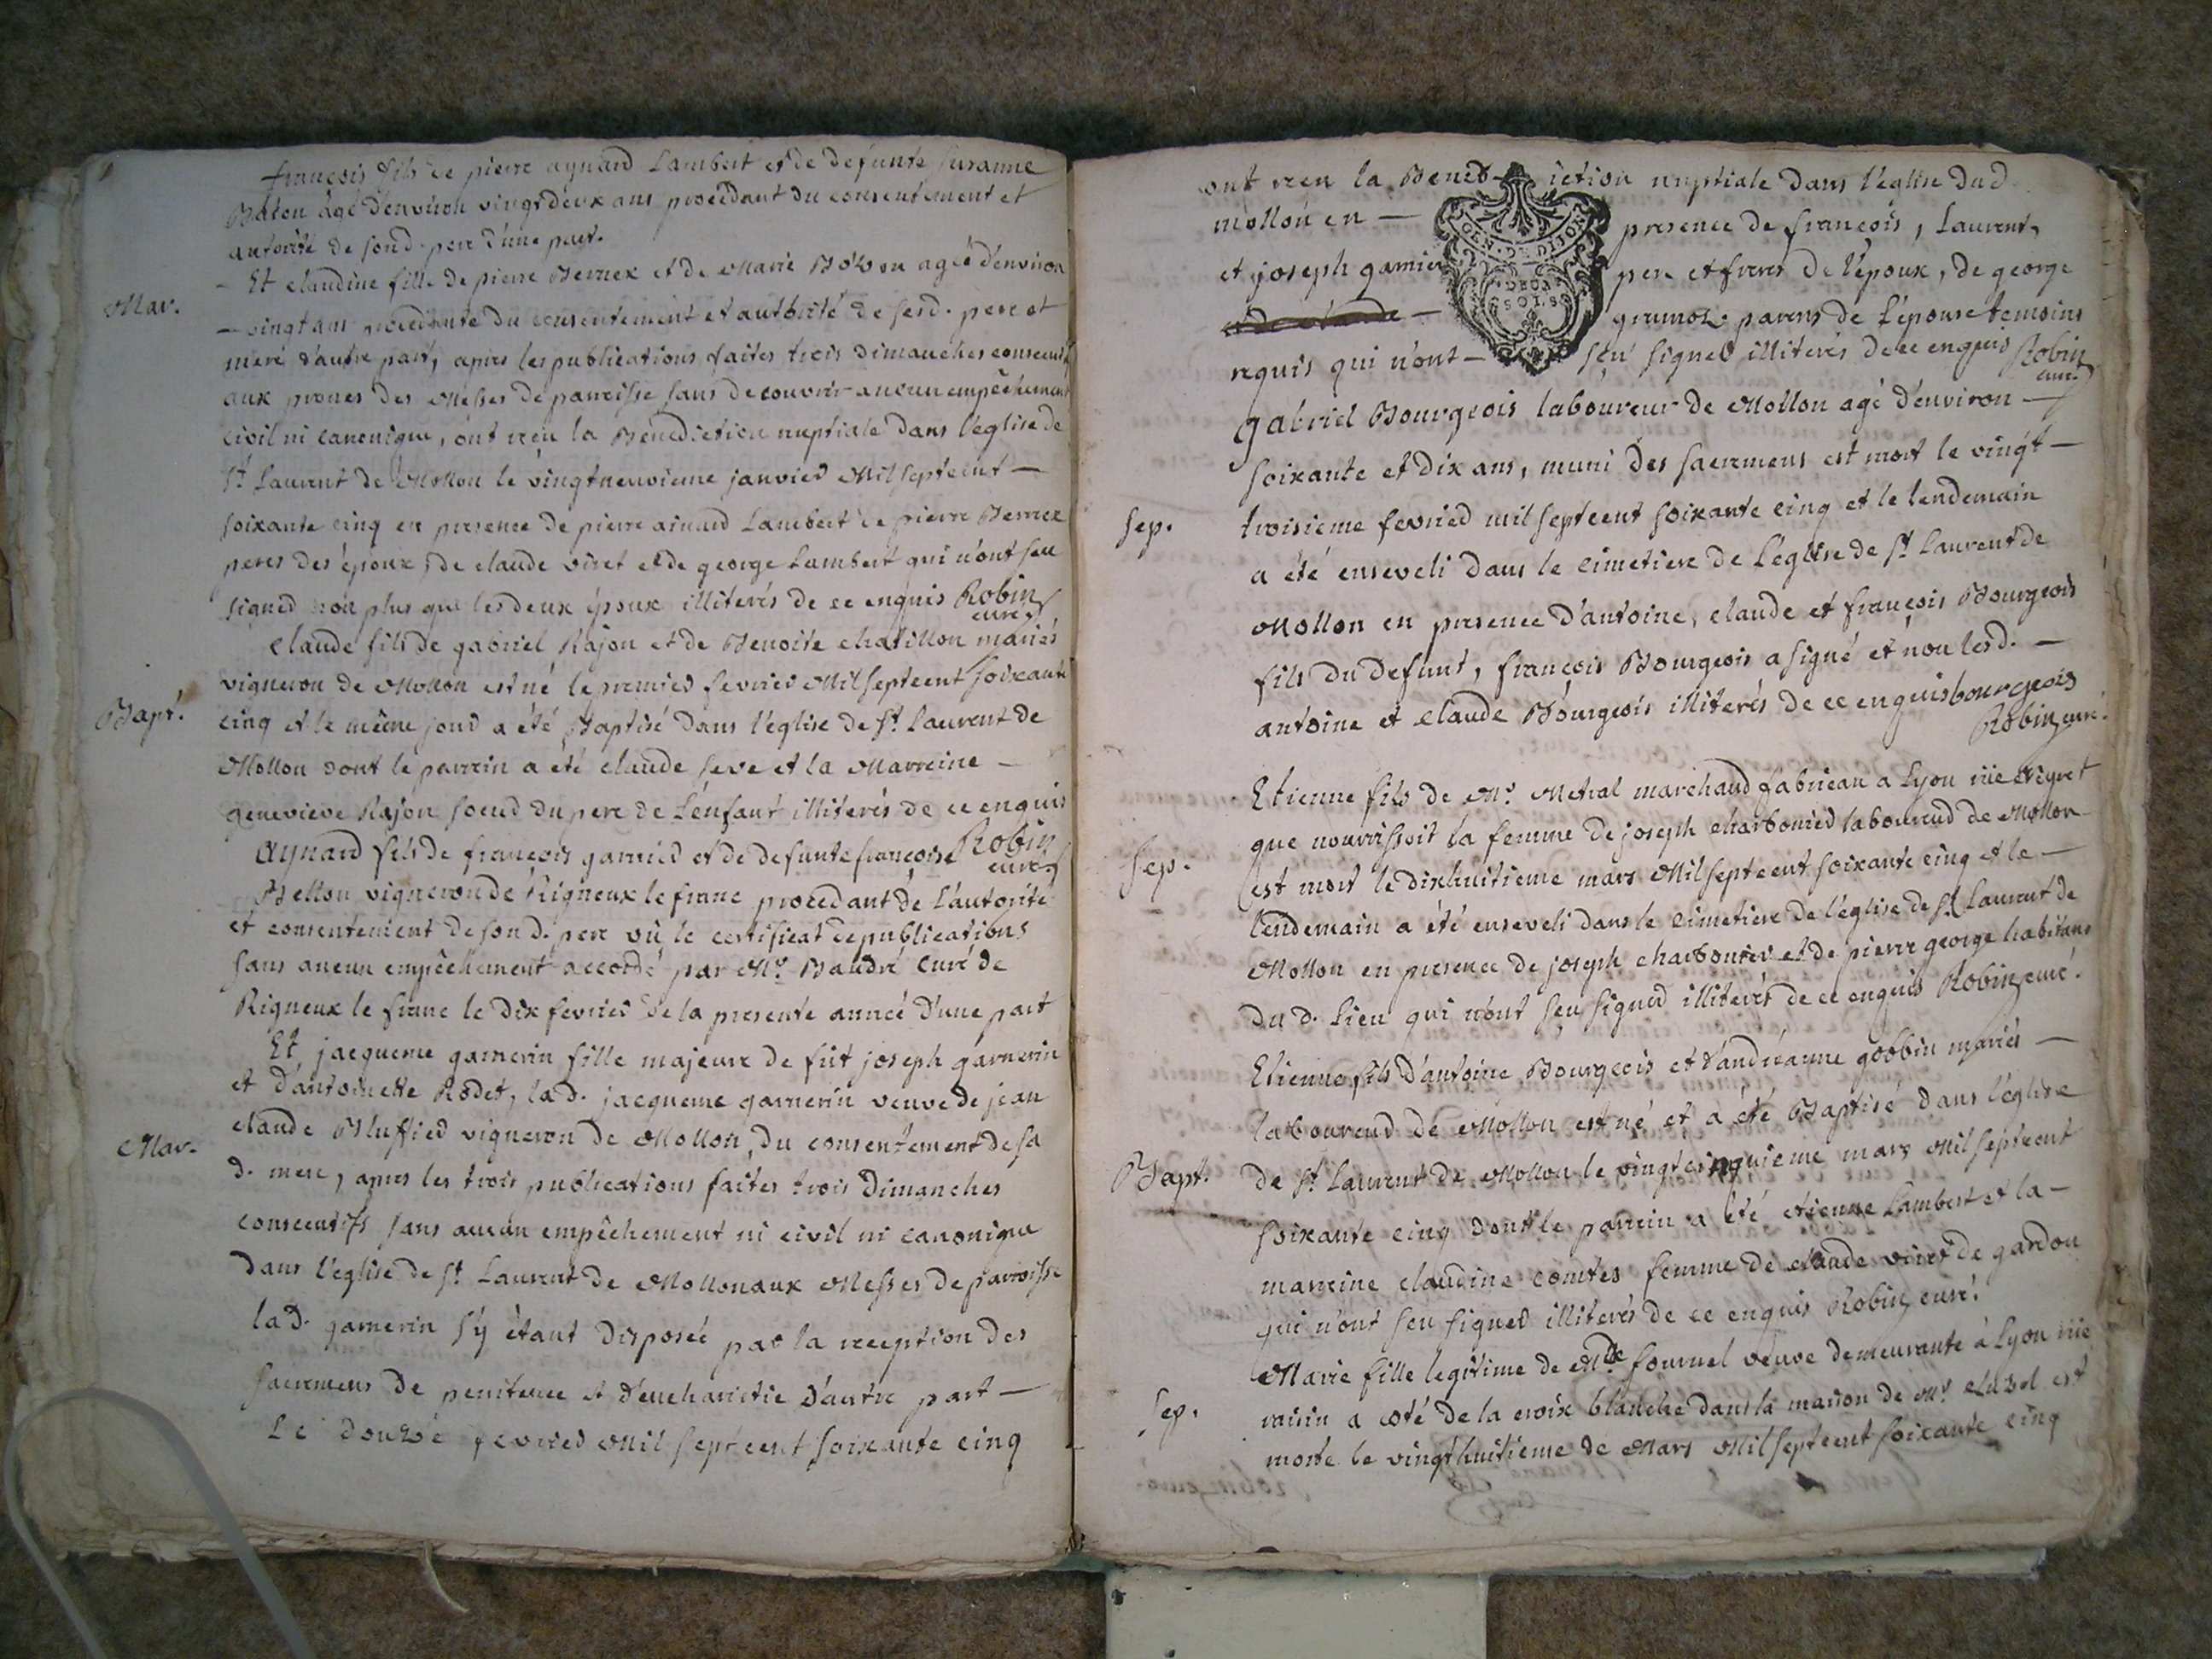 françois fils de pierre aynard Lambert et de defunte susanne
Baton agé d'environ vingt deux ans procedant du consentement et
autorité de sond. pere d'une part.
Et claudine fille de pierre Berrier et de Marie agée d'environ
Mar.
vingt ans procedante du consentement et authorité de sesd. pere et
mere d'autre part, apres les publications faites trois dimanches consecutifs
aux prones des Messes de parroisse sans decouvrir aucun empêchement
civil ni canonique, ont reçu la Benediction nuptiale dans l'eglise de
St. Laurent de Mollon le vingtneuvieme janvier Mil septcent —
soixante cinq en presence de pierre ainard Lambert de pierre Berrier
peres des époux, de claude viret et de george Lambert qui n'ont sçu
signer non plus que les deux époux illiterés de ce enquis Robin
curé
Claude fils de gabriel Rajon et de Benoite chatillon mariés
vigneron de Mollon est né le premier fevrier Mil septcent soixante
Bapt.
cinq et le même jour a été Baptisé dans l'église de St. Laurent de
Mollon dont le parrein a été claude seve et la Marreine —
genevieve Rajon soeur du pere de L'enfant illiterés de ce enquis
Robin
curé
Aynard fils de françois garnier et de defunte françoise
Bellon vigneron de Rigneux le franc procedant de L'autorité
et consentement de son d. pere vû le certificat de publications
sans aucun empêchement accordé par Mr. Baudré Curé de
Rigneux le franc le dix fevrier de la presente année d'une part
Et jacqueme garnerin fille majeure de fût joseph garnerin
et d'antoinette Rodet, la d. jacqueme garnerin veuve de jean
claude Bluffier vigneron de Mollon, du consentement de sa
Mar.
d. mere, apres les trois publications faites trois Dimanches
consecutifs sans aucun empêchement ni civil ni canonique
dans l'eglise de St. Laurent de Mollon aux Messes de parroisse
la d. garnerin s'y étant disposée par la reception des
sacremens de penitence et d'eucharistie d'autre part —
Le douzé fevrier Mil septcent soixante cinq
ont reçu la Bened iction nuptiale dans l'église dud.
mollon en — presence de françois, Laurent,
et joseph garnier pere et freres de l'époux, de george
grumoz parens de L'épouse temoins
requis qui n'ont — sçu signer illiterés de ce enquis Robin
curé
GEN. DE DIJON
DEUX
SOLS
gabriel Bourgeois laboureur de Mollon agé d'environ —
soixante et dix ans, muni des sacremens est mort le vingt —
Sep.
troisieme fevrier mil septcent soixante cinq et le lendemain
a été enseveli dans le cimetiere de L'église de St. Laurent de
Mollon en presence d'antoine, claude et françois Bourgeois
fils du defunt, françois Bourgeois a signé et non lesd. —
antoine et claude Bourgeois illiterés de ce enquis bourgeois
Robin curé.
Etienne fils de Mr. Metral marchand fabrican a Lyon rüe
que nourrissoit la femme de joseph charbonier laboureur de Mollon
Sep.
est mort le dixhuitieme mars Mil septcent soixante cinq et le —
lendemain a été enseveli dans le cimetiere de l'église de St. Laurent de
Mollon en presence de joseph charbonier et de pierre george habitans
du d. Lieu qui n'ont sçu signer illiterés de ce enquis Robin curé.
Etienne fils d'antoine Bourgeois et d'andréanne gobbin mariés —
laboureur de Mollon est né et a été Baptisé dans l'église
Bapt.
de St. Laurent de Mollon le vingtcinquieme mars Mil septcent
soixante cinq dont le parrein a été etienne Lambert et la —
marreine claudine comtes femme de claude viret de gardon
qui n'ont sçu signer illiterés de ce enquis Robin curé.
Marie fille legitime de Mde. fournel veuve demeurante à Lyon rüe
Sep.
raisin a coté de la croix blanche dans la maison de Mr. est
morte le vingthuitieme de Mars Mil septcent soixante cinq